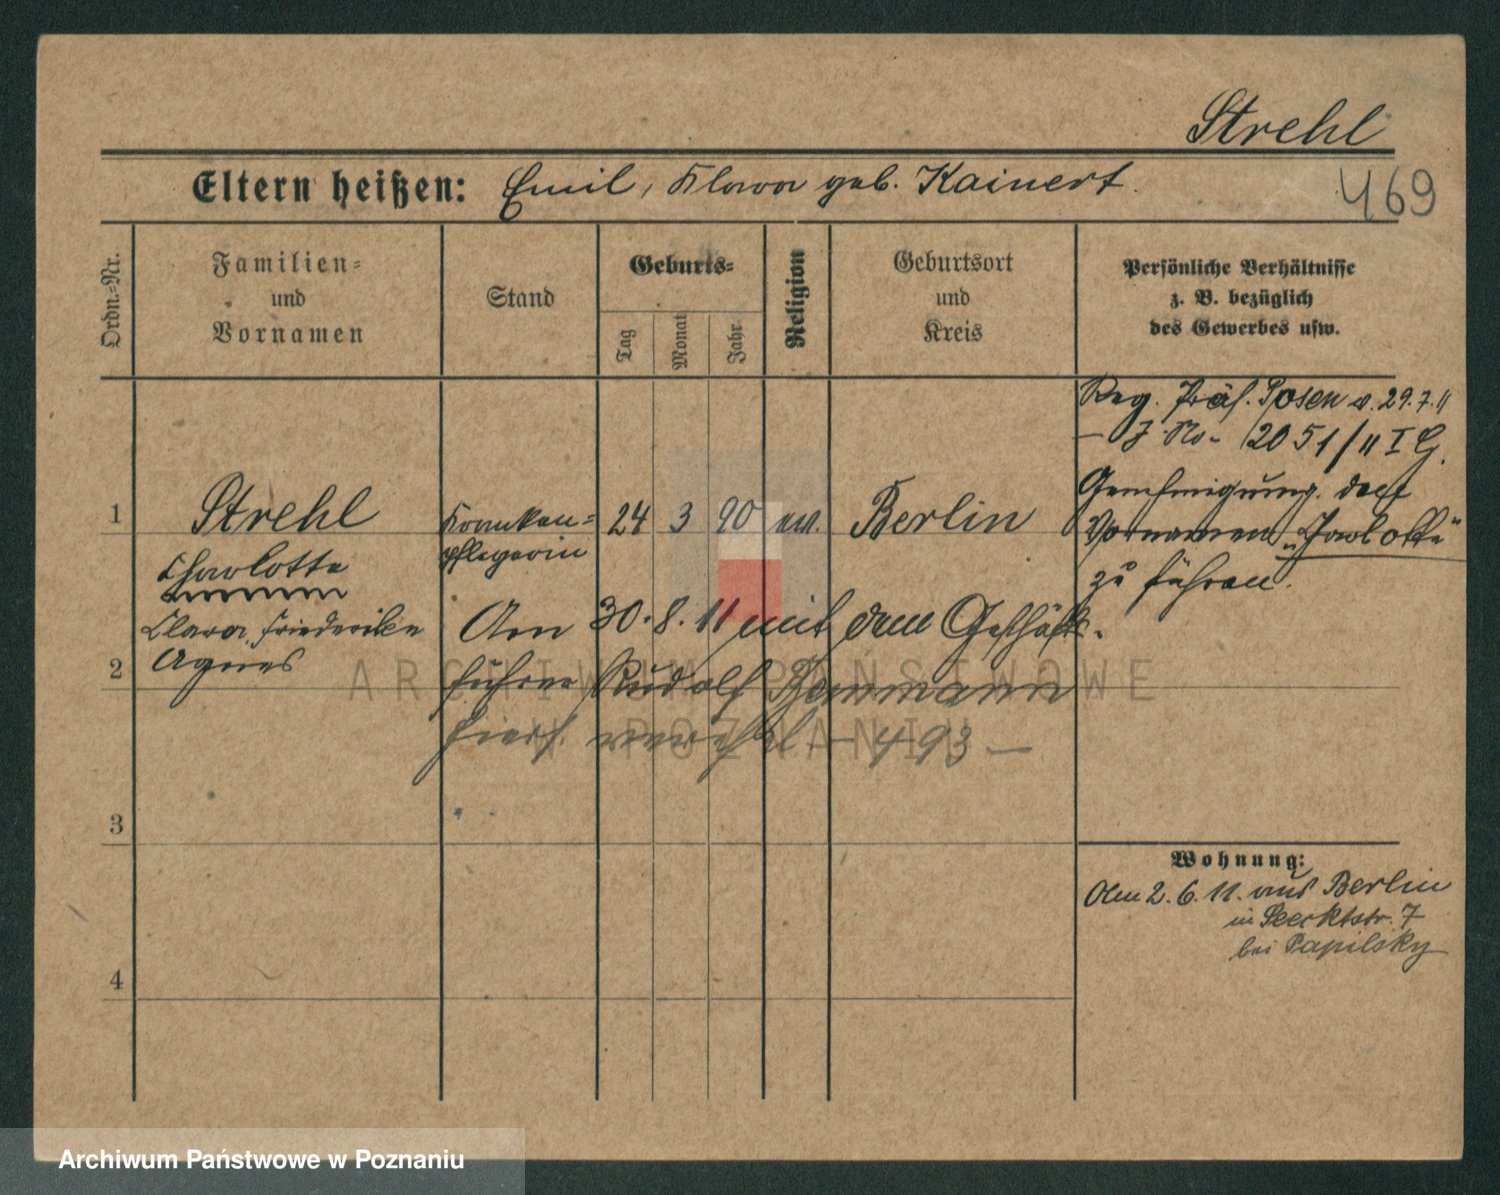 Strehl
Eltern heißen: Emil, Klara geb. Kainert.
469
Ordn.=Nr.
Familien=
und
Vornamen
Stand
Geburts=
Tag
Monat
Jahr
Religion
Geburtsort
und
Kreis
Persönliche Verhältnisse
z. B. bezüglich
des Gewerbes usw.
Reg. Präs. Posen v. 29.7.11
– J. No. 2051/11 I G.
Genehmigung. darf
Vornamen „Charlotte"
zu führen.
1
Strehl
Charlotte
Clara, Friederike
Agnes
Kranken=
pflegerin
24 3 90 ev. Berlin
Am 30.8.11 mit dem Geschäfts-
führer Rudolf
hiers. verehel – 493 –
2
3
4
Wohnung:
Am 2.6.11. aus Berlin
in 7
bei Papilsky
ARCHIWUM PAŃSTWOWE
W POZNANIU
Archiwum Państwowe w Poznaniu